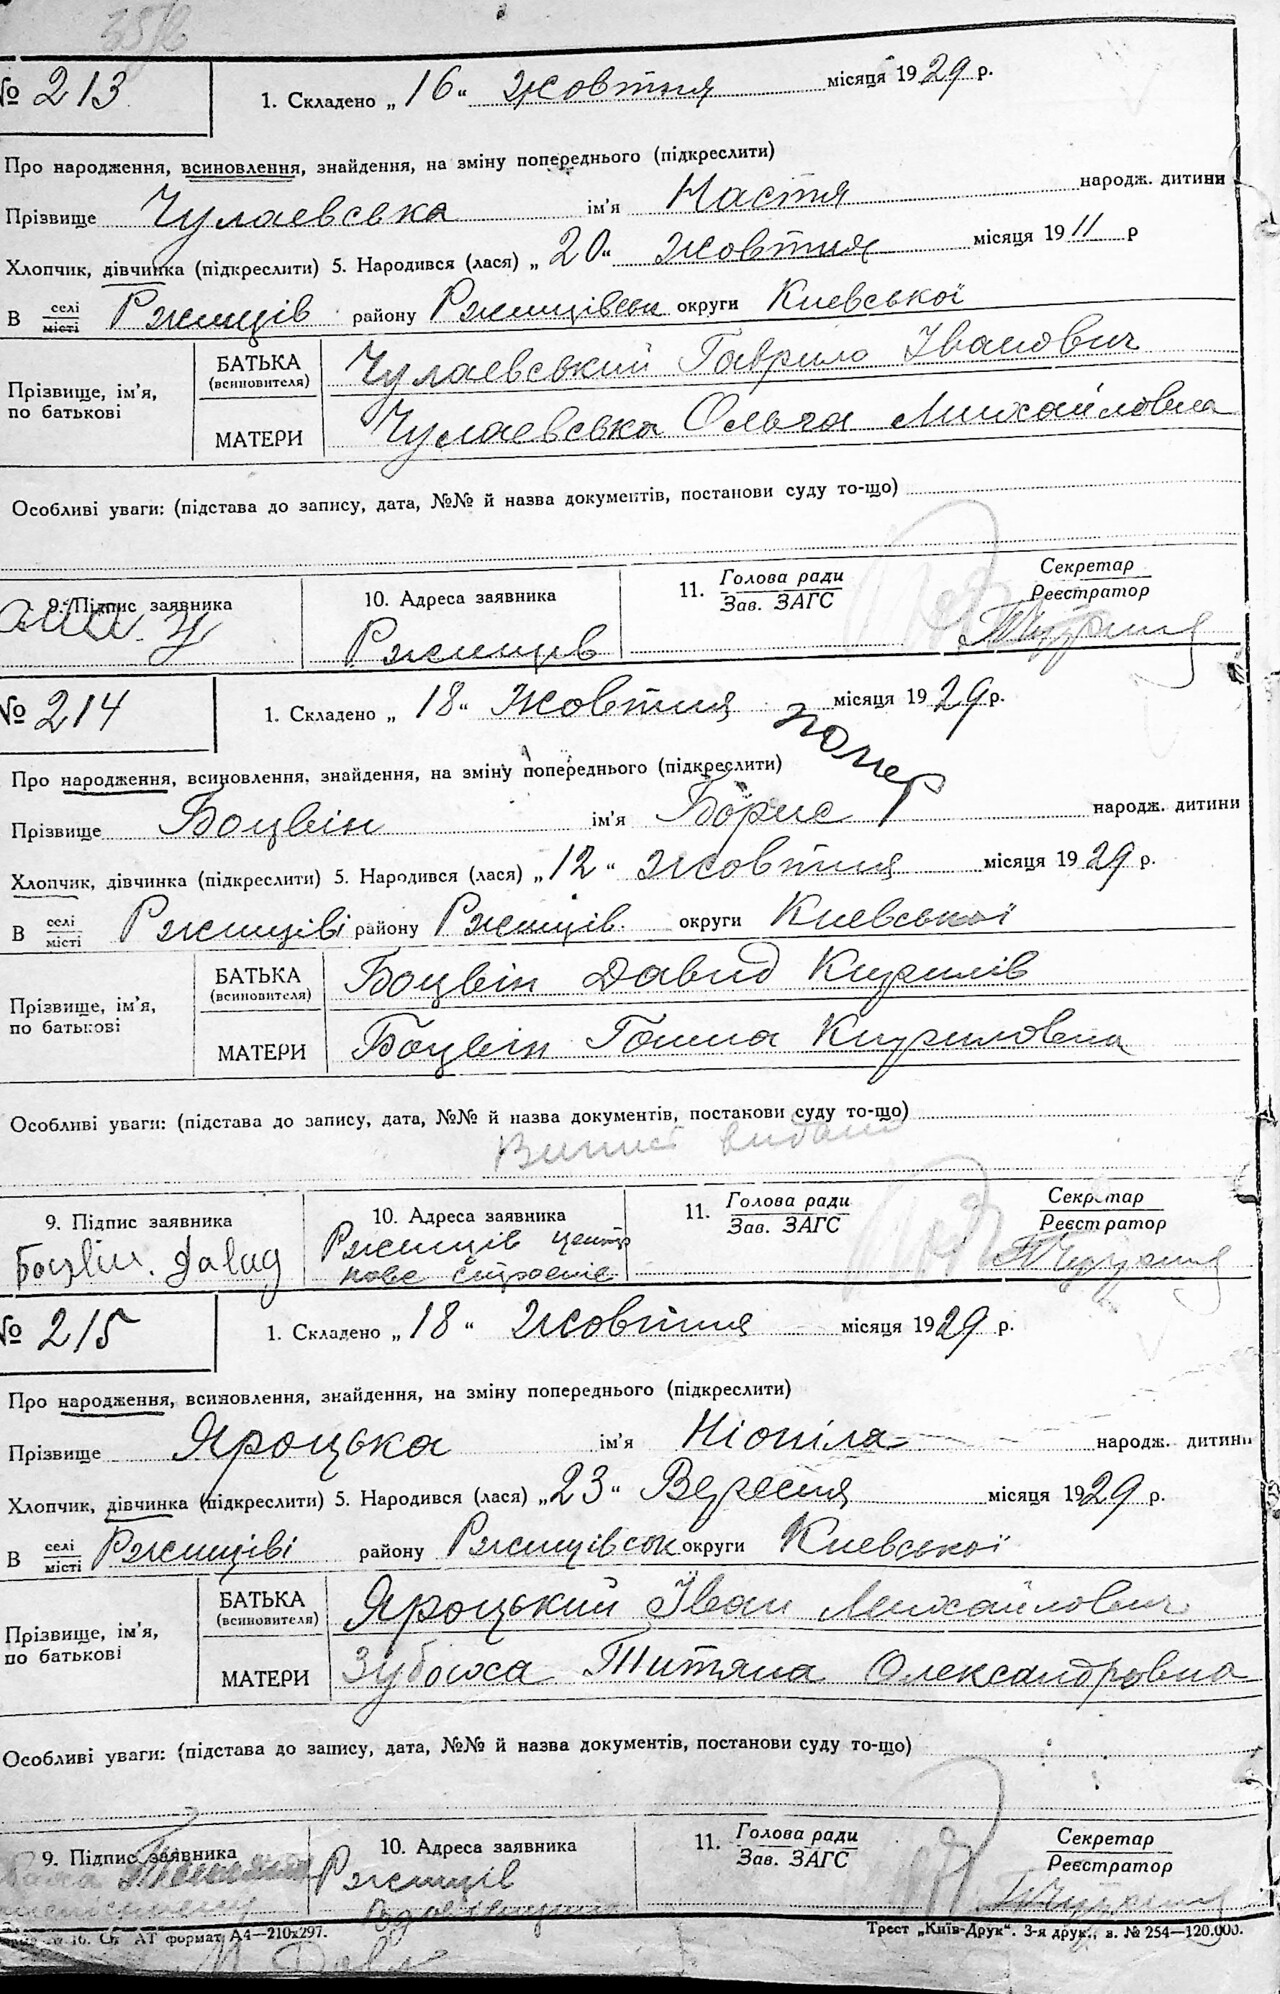 № 213
1. Складено „ 16 “ жовтня місяця 1929 р.
Про народження, всиновлення, знайдення, на зміну попереднього (підкреслити)
Прізвище Чулаевська ім’я Настя народж. дитини
Хлопчик, дівчинка (підкреслити) 5. Народився (лася) „ 20 “ жовтня місяця 1911 р
В селі місті Ржищів району Ржищівськ округи Киевської
Прізвище, ім’я, по батькові
БАТЬКА (всиновителя) Чулаевський Гаврило Іванович
МАТЕРИ Чулаевська Ольга Михайловна
Особливі уваги: (підстава до запису, дата, №№ й назва документів, постанови суду то-що)
9. Підпис заявника 10. Адреса заявника 11. Голова ради Зав. ЗАГС Секретар Реєстратор
Ржищев
№ 214
1. Складено „ 18 “ Жовтня місяця 1929 р.
помер
Про народження, всиновлення, знайдення, на зміну попереднього (підкреслити)
Прізвище Боцвін ім’я Борис народж. дитини
Хлопчик, дівчинка (підкреслити) 5. Народився (лася) „ 12 “ жовтня місяця 1929 р.
В селі місті Ржищіві району Ржищів. округи Киевської
Прізвище, ім’я, по батькові
БАТЬКА (всиновителя) Боцвін Давид Кирилів
МАТЕРИ Боцвін Ганна Кириловна
Особливі уваги: (підстава до запису, дата, №№ й назва документів, постанови суду то-що)
видано
9. Підпис заявника 10. Адреса заявника 11. Голова ради Зав. ЗАГС Секретар Реєстратор
Боцвін. Давид Ржищів центр
нове строеніе
№ 215
1. Складено „ 18 “ Жовтня місяця 1929 р.
Про народження, всиновлення, знайдення, на зміну попереднього (підкреслити)
Прізвище Яроцька ім’я Ніоніла народж. дитини
Хлопчик, дівчинка (підкреслити) 5. Народився (лася) „ 23 “ Вересня місяця 1929 р.
В селі місті Ржищіві району Ржищівськ округи Киевської
Прізвище, ім’я, по батькові
БАТЬКА (всиновителя) Яроцький Іван Михайлович
МАТЕРИ Титяна Олександровна
Особливі уваги: (підстава до запису, дата, №№ й назва документів, постанови суду то-що)
9. Підпис заявника 10. Адреса заявника 11. Голова ради Зав. ЗАГС Секретар Реєстратор
Ржищів
АТ формат А4—210х297. Трест „Київ-Друк“. 3-я друк., з. № 254—120.000.